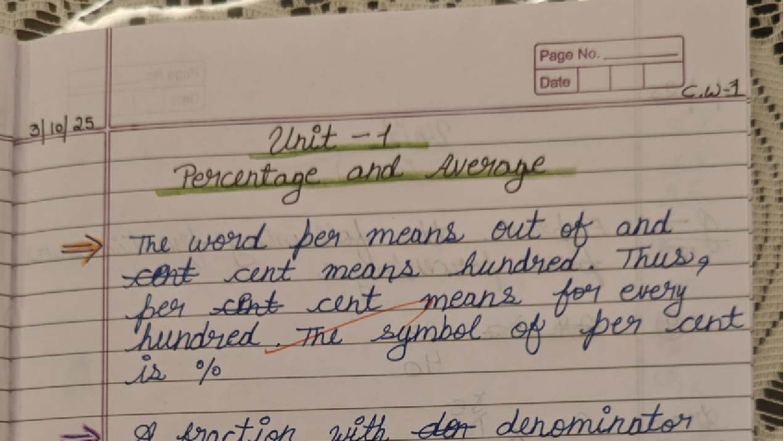 Page No.
Date
C.W-1
3/10/25
Unit - 1
Percentage and Average
⇒ The word per means out of and
cent cent means hundred. Thus,
per cent cent means for every
hundred. The symbol of per cent
is %
⇒ A fraction with den denominator